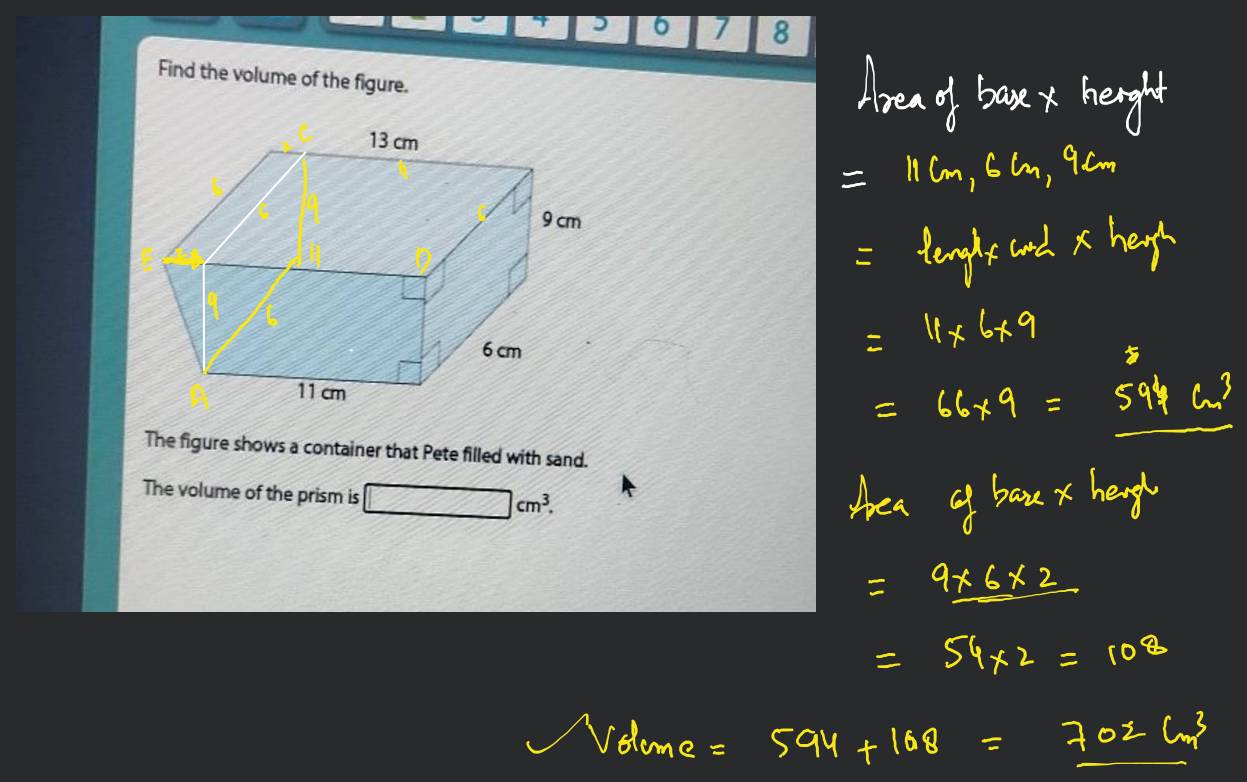 3 4 5 6 7 8
Find the volume of the figure.
C
13 cm
11
6
6
9
6
9 cm
E
11
D
9
6
6 cm
A
11 cm
The figure shows a container that Pete filled with sand.
The volume of the prism is
cm³.
Area of base x height
= 11 Cm, 6 Cm, 9 Cm
= 11 x 6 x 9
= 66 x 9 = 594 Cm³
Area of base x heigh
= 9 x 6 x 2
= 54 x 2 = 108
Volume = 594 + 108 = 702 Cm³